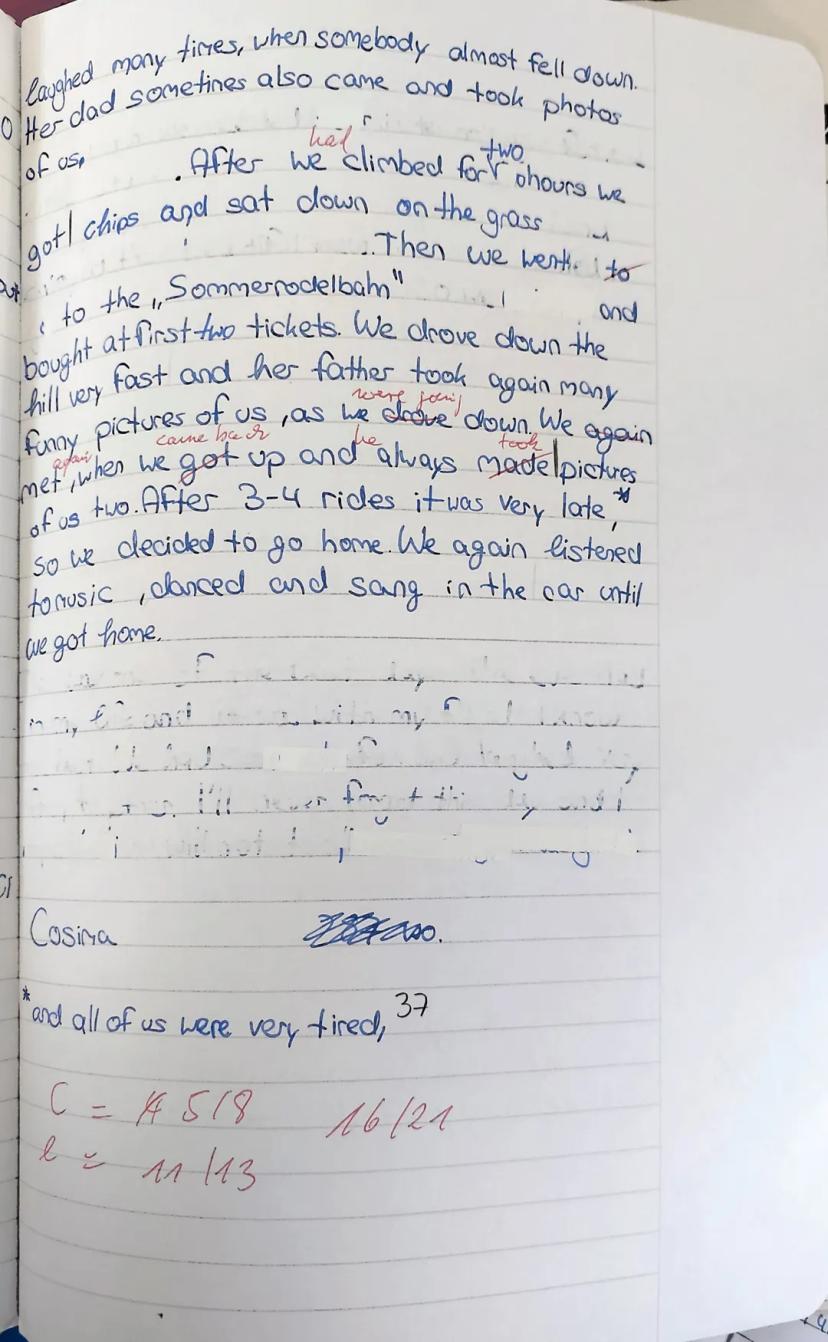 laughed many times, when somebody almost fell down.
Her dad sometimes also came and took photos
of us.
had
two
. After we climbed for ohours we
got chips and sat down on the grass
.Then we went to
to the „Sommerrodelbahn"
and
bought at first two tickets. We drove down the
hill very fast and her father took again many
were going
funny pictures of us, as we drove down. We again
came back
he
took
again
met, when we got up and always made pictures
of us two. After 3-4 rides it was very late,*
so we decided to go home. We again listened
to music, danced and sang in the car until
we got home.
Cosima
*and all of us were very tired, 37
C = 5/8
16/21
l = 11/13